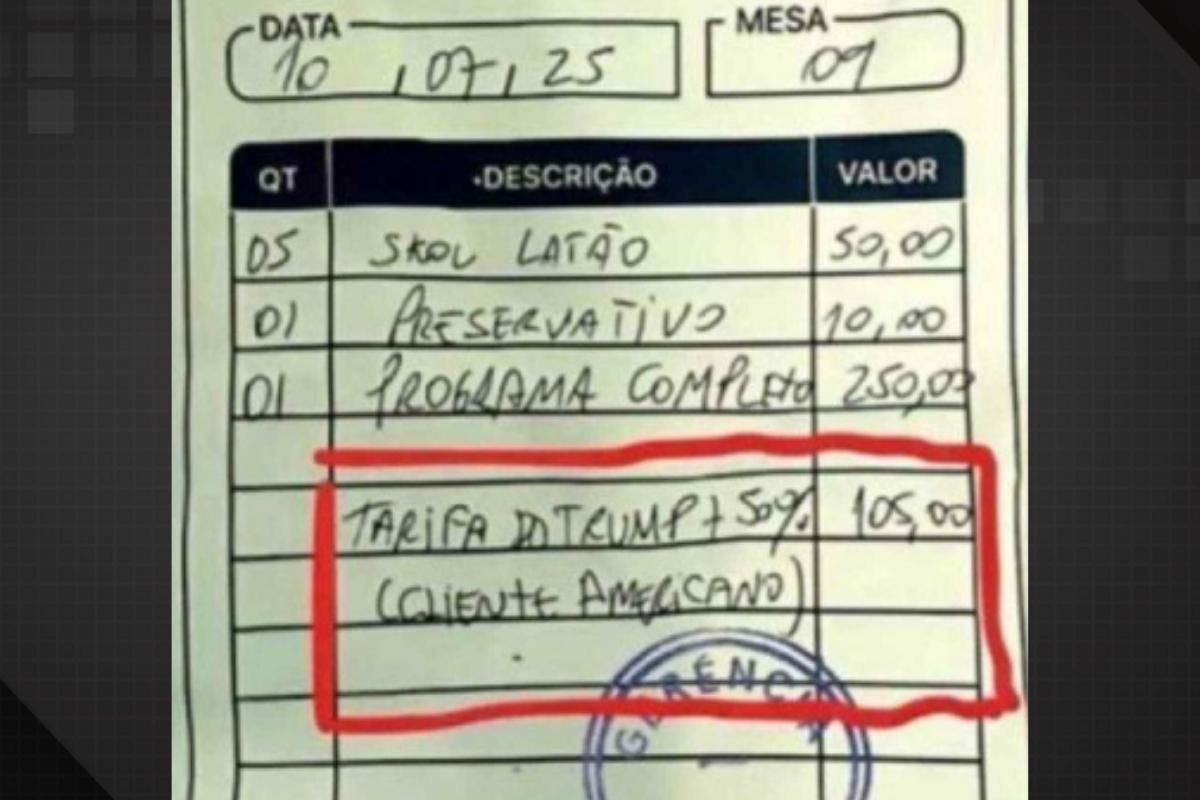 DATA
10 , 07 , 25
MESA
09
QT DESCRIÇÃO VALOR
05 SKOL LATÃO 50,00
01 PRESERVATIVO 10,00
01 PROGRAMA COMPLETO 250,00
TARIFA DO TRUMP + 50% 105,00
(CLIENTE AMERICANO)
GERÊNCIA